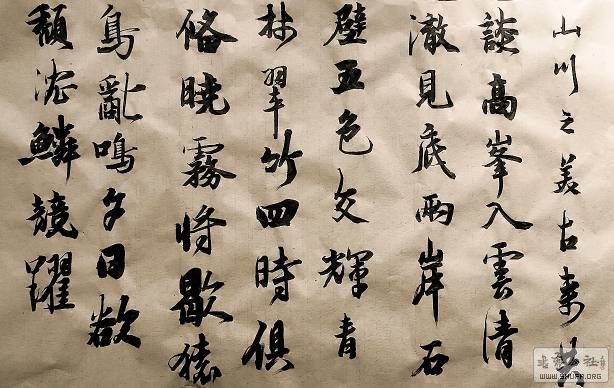 山川之美古來共
談高峯入雲清
澈見底兩岸石
壁五色交輝青
林翠竹四時俱
俻曉霧將歇猿
鳥亂鳴夕日欲
頹沈鱗競躍